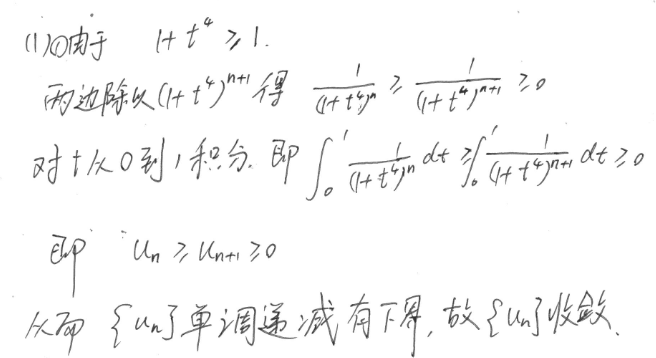 (1)①由于 1+t⁴≥1.
两边除以(1+t⁴)ⁿ⁺¹得 1/(1+t⁴)ⁿ ≥ 1/(1+t⁴)ⁿ⁺¹ ≥0
对t从0到1积分. 即 ∫₀¹ 1/(1+t⁴)ⁿ dt ≥ ∫₀¹ 1/(1+t⁴)ⁿ⁺¹ dt ≥0
即 uₙ≥uₙ₊₁≥0
从而 {uₙ}单调递减有下界,故{uₙ}收敛.